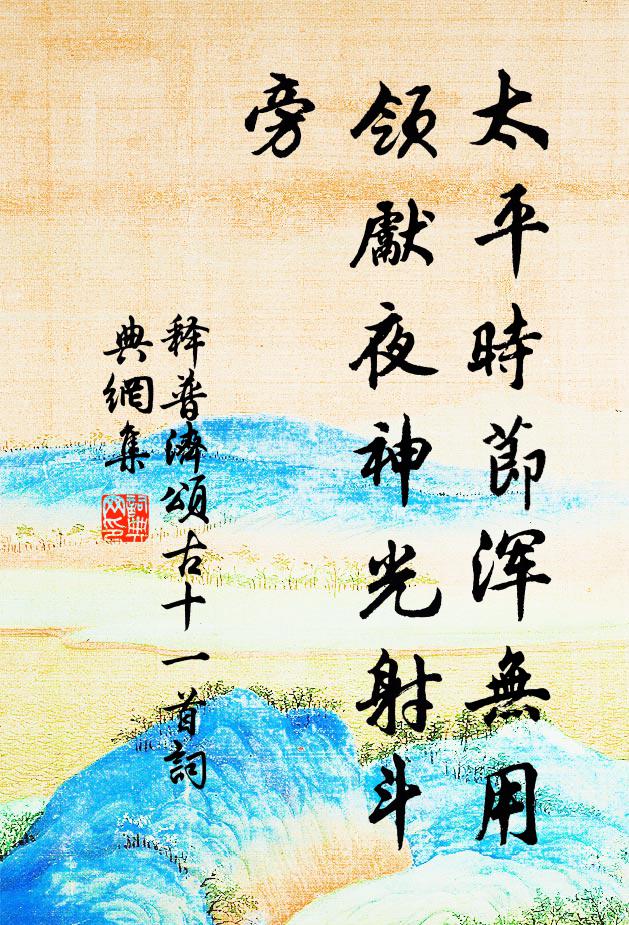 太平時節浑無用
領獻夜神光射斗
旁
释普濟頌古十一首詞
典網集
詞典